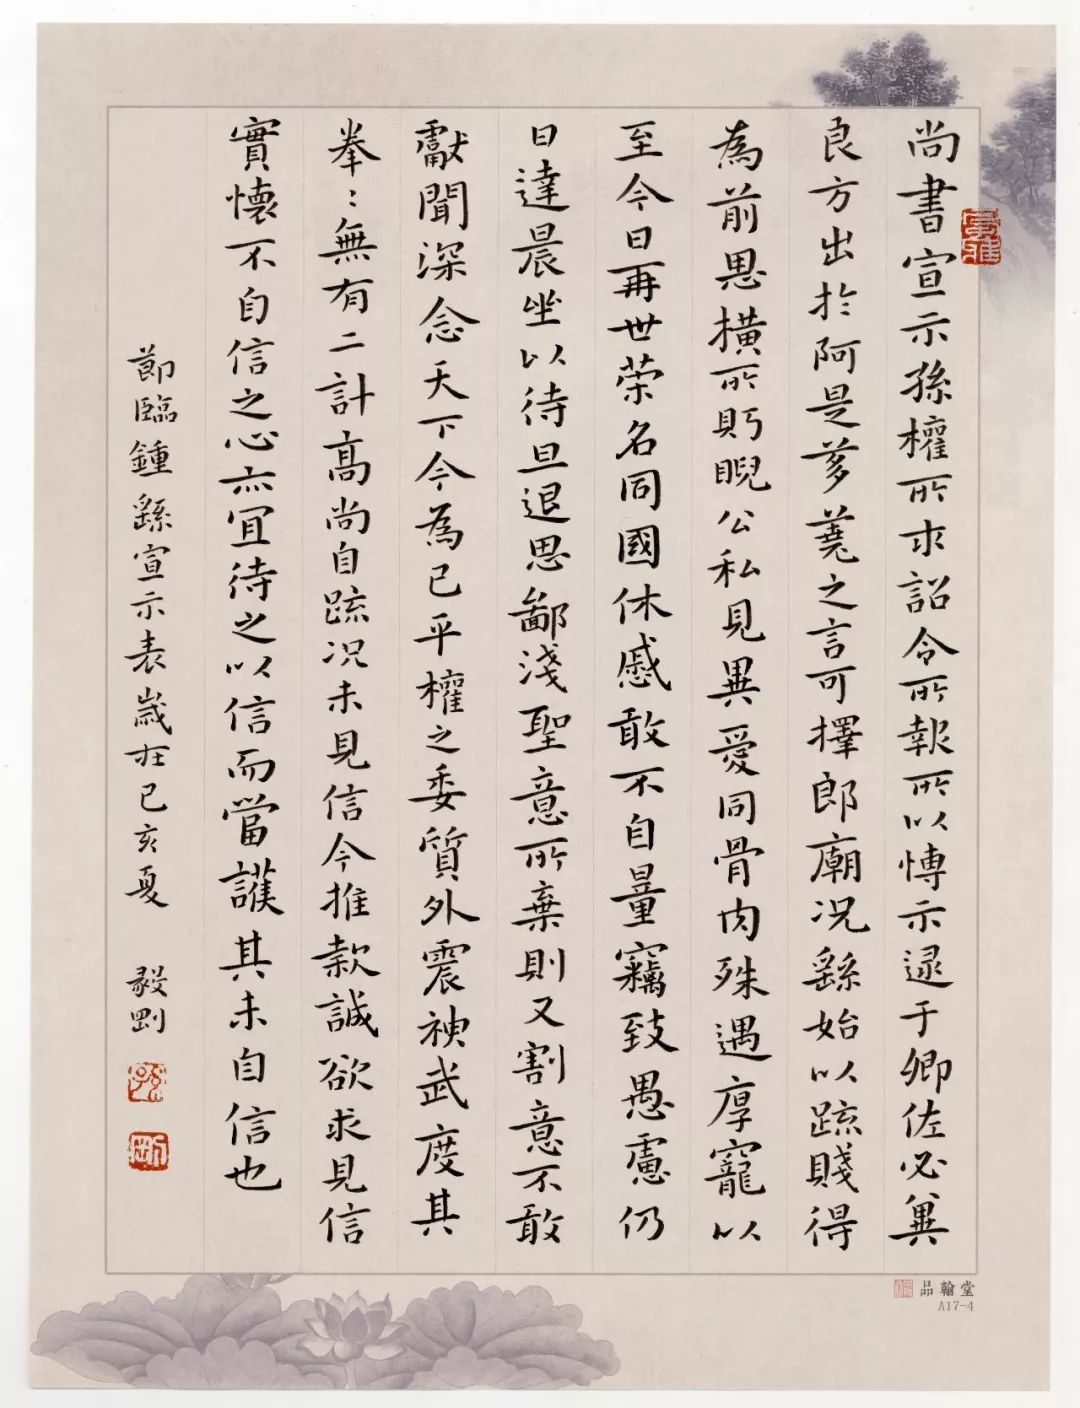 尚書宣示孫權所求詔令所報所以博示逮于卿佐必冀
良方出於阿是芻蕘之言可擇郎廟况繇始以疏賤得
為前恩橫所眄睨公私見異愛同骨肉殊遇厚寵以
至今日再世荣名同國休慼敢不自量竊致愚慮仍
日達晨坐以待旦退思鄙淺聖意所棄則又割意不敢
獻聞深念天下今為已平權之委質外震神武度其
拳〻無有二計高尚自疏况未見信今推款誠欲求見信
實懷不自信之心亦宜待之以信而當護其未自信也
節臨鍾繇宣示表歲在己亥夏 毅剛
品翰堂
A17-4